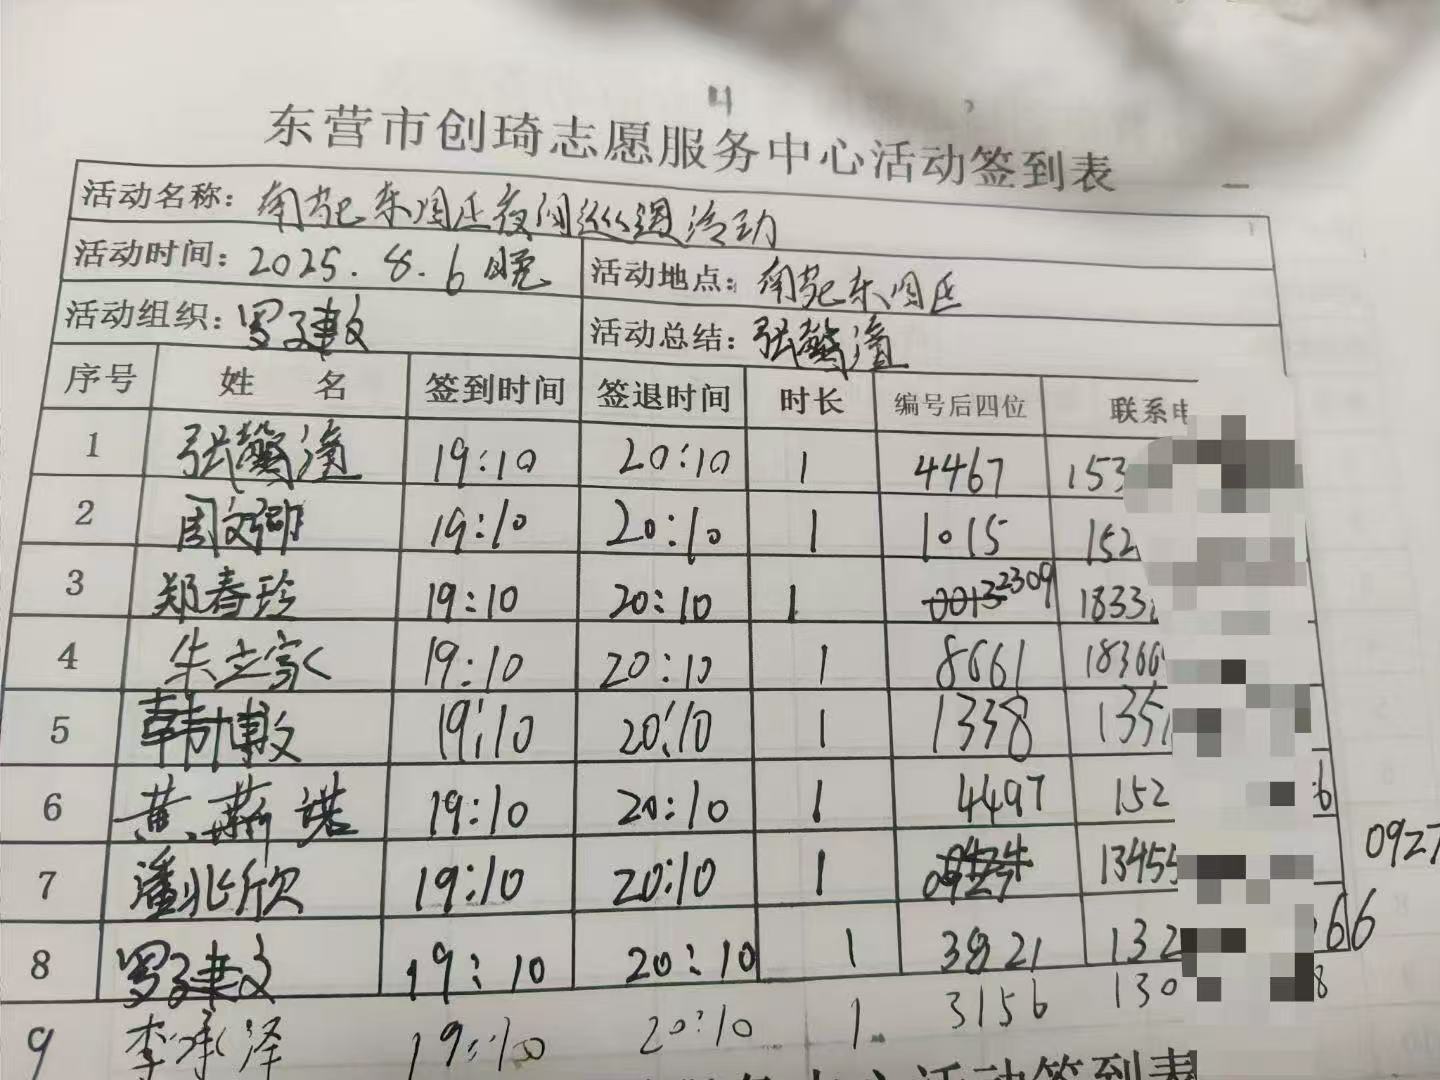 东营市创琦志愿服务中心活动签到表
活动名称：南苑东园区夜间巡逻活动
活动时间：2025.8.6晚 活动地点：南苑东园区
活动组织：罗建文 活动总结：张
序号 姓 名 签到时间 签退时间 时长 编号后四位 联系电
1 张 19:10 20:10 1 4467 153
2 周文 19:10 20:10 1 1015 152
3 郑春珍 19:10 20:10 1 0013 2309 1833
4 朱立家 19:10 20:10 1 8661 18366
5 韩博文 19:10 20:10 1 1338 1351
6 黄 诺 19:10 20:10 1 4497 152 6
7 潘兆欣 19:10 20:10 1 0927 13455 0927
8 罗建文 19:10 20:10 1 3821 132 66
9 李承泽 19:10 20:10 1 3156 130 8
中心活动签到表